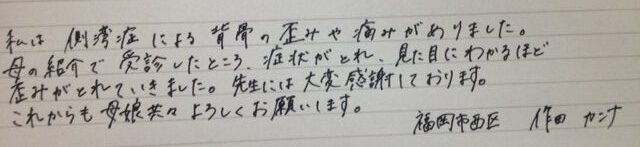 私は 側湾症による 背骨の歪みや痛みがありました。
母の紹介で 受診したところ、症状がとれ、見た目にわかるほど
歪みがとれていきました。先生には大変感謝しております。
これからも母娘共々よろしくお願いします。
福岡市西区 作田 カンナ